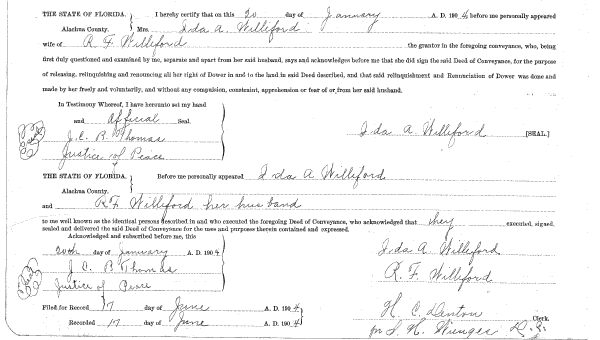 THE STATE OF FLORIDA. } I hereby certify that on this 20 day of January A. D. 1904 before me personally appeared
Alachua County. Mrs. Ida A. Williford
wife of R. F. Williford the grantor in the foregoing conveyance, who, being
first duly questioned and examined by me, separate and apart from her said husband, says and acknowledges before me that she did sign the said Deed of Conveyance, for the purpose
of releasing, relinquishing and renouncing all her right of Dower in and to the land in said Deed described, and that said relinquishment and Renunciation of Dower was done and
made by her freely and voluntarily, and without any compulsion, constraint, apprehension or fear of or from her said husband.
In Testimony Whereof, I have hereunto set my hand
and official Seal.
J. C. B. Thomas Ida A. Williford [SEAL.]
Justice of Peace
THE STATE OF FLORIDA. } Before me personally appeared Ida A Williford
Alachua County.
and R. F. Williford her husband
to me well known as the identical persons described in and who executed the foregoing Deed of Conveyance, who acknowledged that they executed, signed,
sealed and delivered the said Deed of Conveyance for the uses and purposes therein contained and expressed.
Acknowledged and subscribed before me, this
20th day of January A. D. 1904 Ida A. Williford
J. C. B Thomas R. F. Williford
Justice of Peace
Filed for Record 17 day of June A. D. 1904 H. C. Denton Clerk.
Recorded 17 day of June A. D. 1904